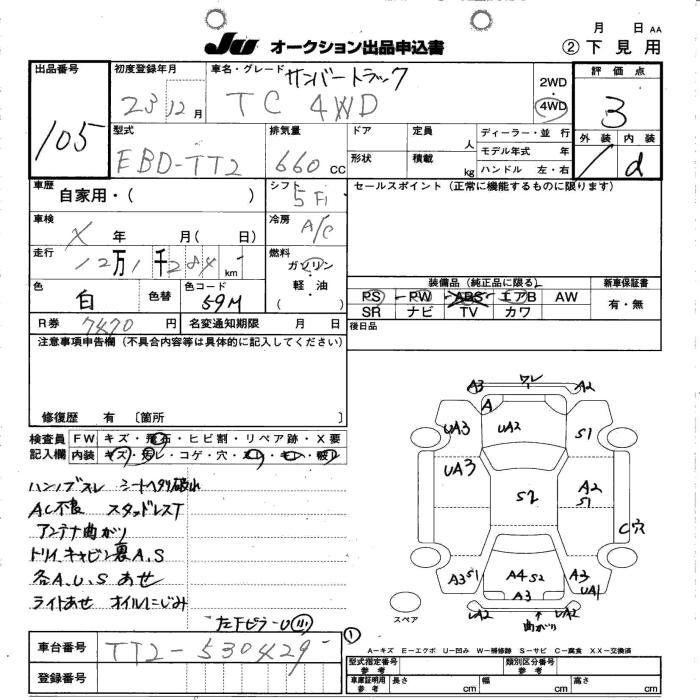 月 日 AA
JU オークション出品申込書 ②下見用
出品番号 105
初度登録年月 23 12月
車名・グレード サンバートラック
TC 4WD
2WD
4WD
評価点 3
外装 内装 d
型式 EBD-TT2
排気量 660 cc
ドア 定員 人
形状 積載 kg
ディーラー・並 行
モデル年式 年
ハンドル 左・右
車歴 自家用・( )
シフト 5 F1
セールスポイント(正常に機能するものに限ります)
車検 X 年 月( 日)
冷房 A/C
走行 12万1千284km
燃料 ガソリン・軽油
( )
色 白 色替
色コード 59M
装備品(純正品に限る) 新車保証書
PS PW ABS エアB AW 有・無
SR ナビ TV カワ
R券 7470円 名変通知期限 月 日
後日品
注意事項申告欄(不具合内容等は具体的に記入してください)
修復歴 有 〔箇所 〕
検査員 FW キズ・飛石・ヒビ割・リペア跡・X要
記入欄 内装 キズ・汚レ・コゲ・穴・スレ・キレ・破レ
ハンノブスレ シートヘタリ破れ
AC不良 スタッドレスT
アンテナ曲がり
トリイ,キャビン裏A,S
各A,U,S あせ
ライトあせ オイルにじみ
左下ピラーU(小)
ワレ
A3 A2
A
UA3 UA2 S1
UA3 S2 A2
S1
C穴
A3 S1 A4 S2 A3
A3 UA1
UA2 ↑ UA2
曲がり
スペア
車台番号 TT2-530429
登録番号
①
A…キズ E…エクボ U…凹み W…補修跡 S…サビ C…腐食 XX…交換済
型式指定番号 参考
類別区分番号 参考
車庫証明用 参考 長さ cm 幅 cm 高さ cm